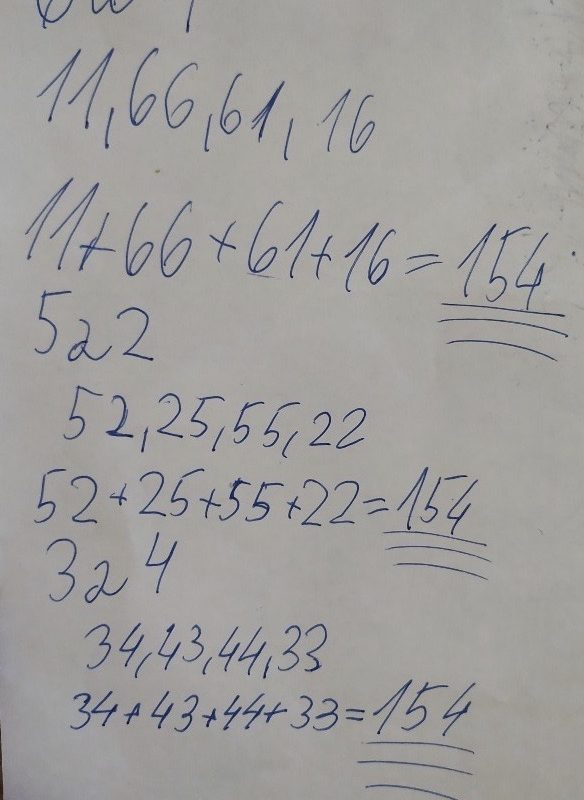 11, 66, 61, 16
11+66+61+16=154
5 a 2
52, 25, 55, 22
52+25+55+22=154
3 a 4
34, 43, 44, 33
34+43+44+33=154